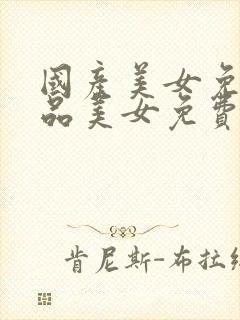 國產美女免
品美女免費
肯尼斯-布拉